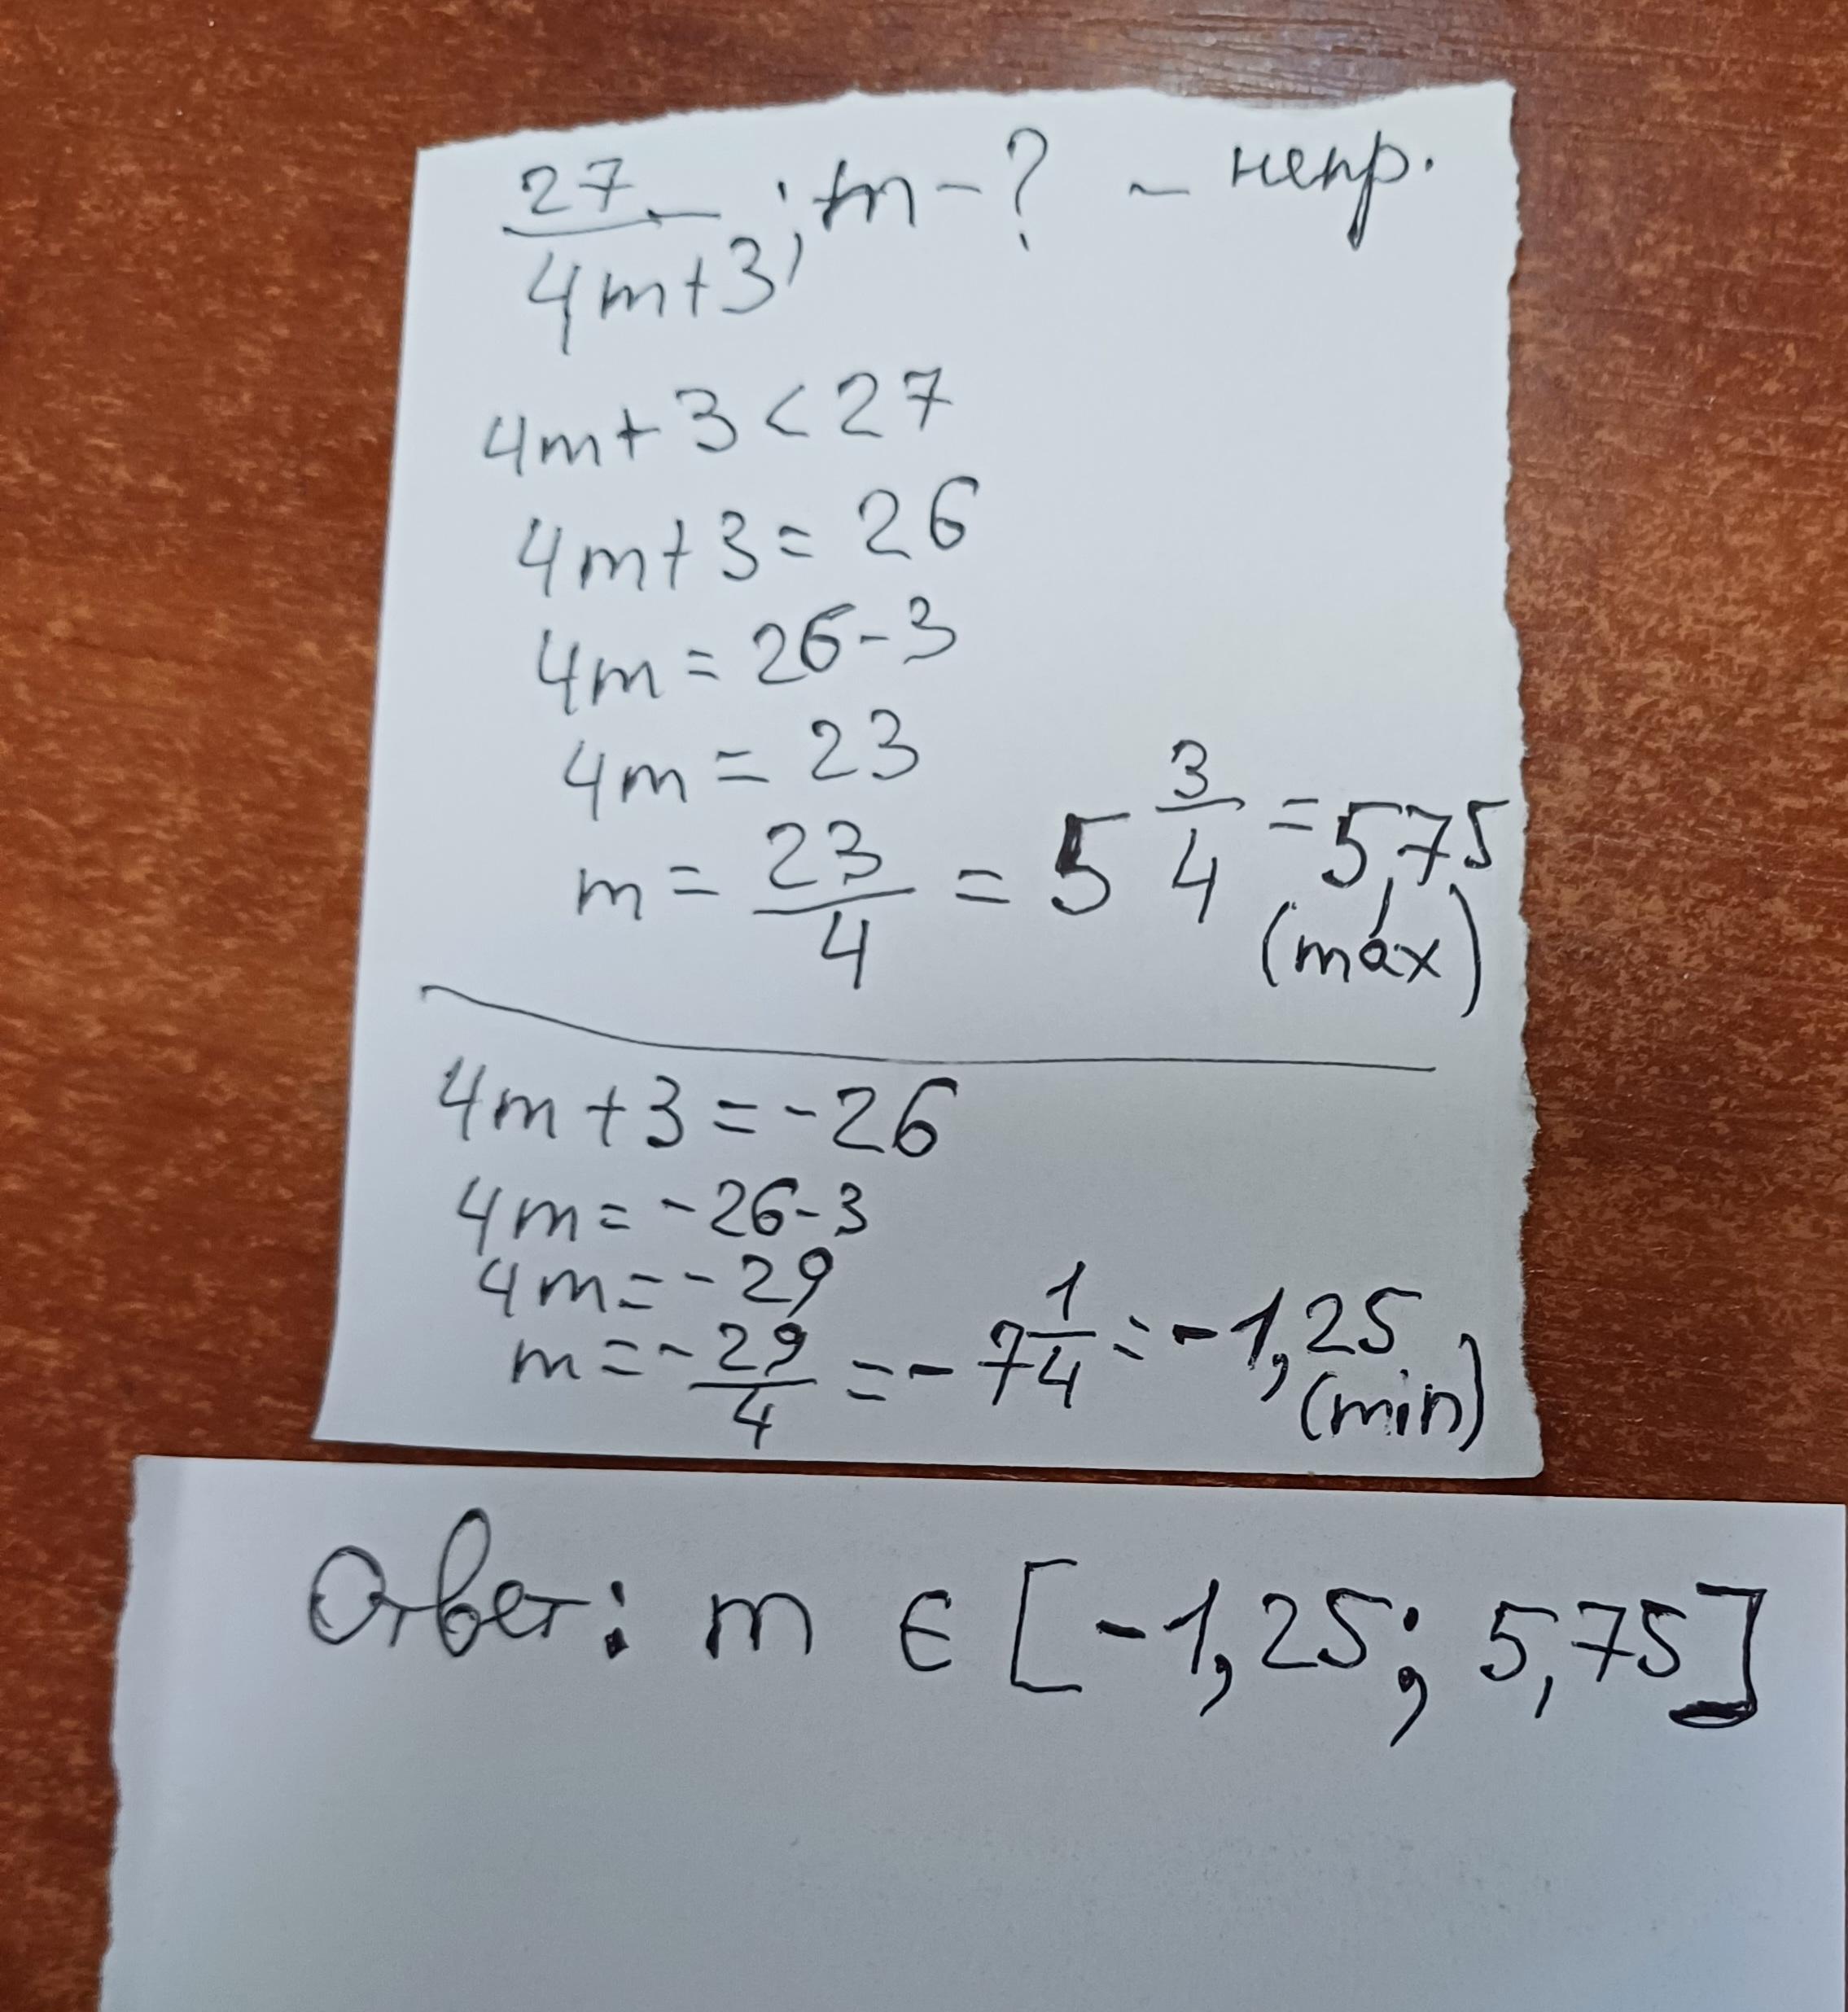 27/(4m+3); m - ? - непр.
4m + 3 < 27
4m + 3 = 26
4m = 26 - 3
4m = 23
m = 23/4 = 5 3/4 = 5,75
(max)
4m + 3 = -26
4m = -26 - 3
4m = -29
m = -29/4 = -7 1/4 = -1,25
(min)
Ответ: m ∈ [-1,25; 5,75]